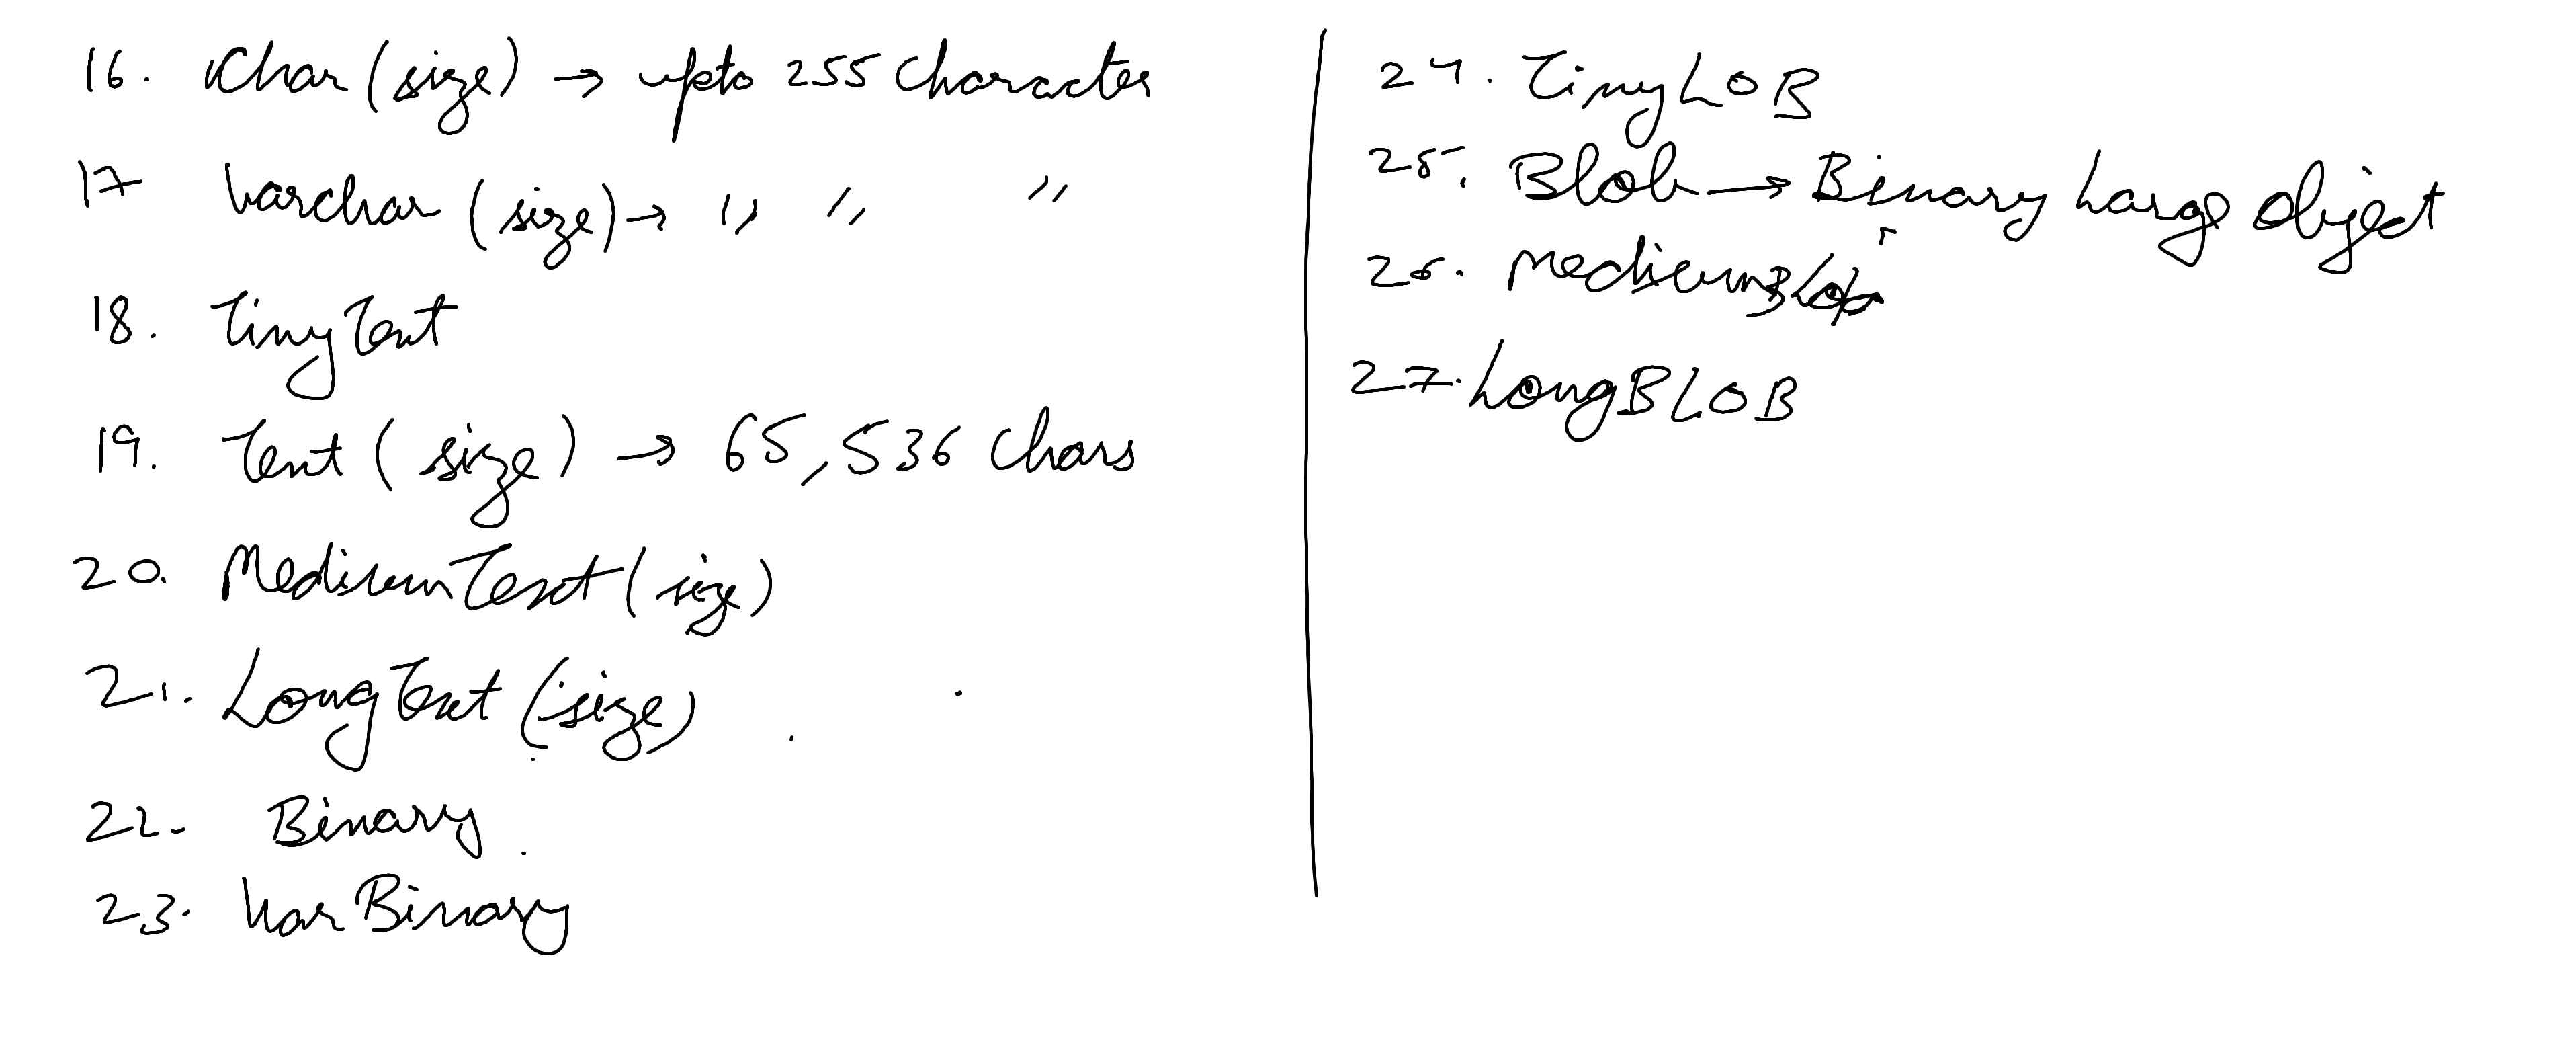 16. Char (size) → upto 255 Character
17 Varchar (size) → " " "
18. TinyText
19. Text (size) → 65,536 Chars
20. MediumText (size)
21. LongText (size)
22. Binary
23. VarBinary
24. TinyLOB
25. Blob → Binary Large Object
26. MediumBlob
27. LongBLOB